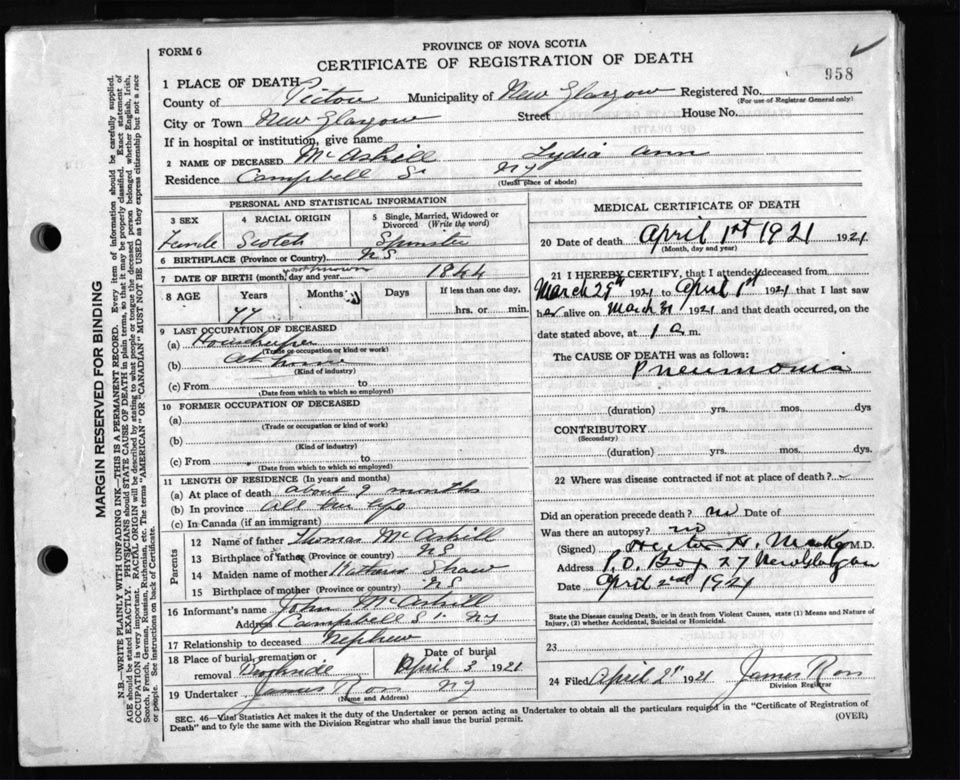 FORM 6
PROVINCE OF NOVA SCOTIA
CERTIFICATE OF REGISTRATION OF DEATH
958
1 PLACE OF DEATH
County of Pictou Municipality of New Glasgow Registered No.
(For use of Registrar General only)
City or Town New Glasgow Street House No.
If in hospital or institution, give name
2 NAME OF DECEASED McAskill Lydia Ann
Residence Campbell St NG
(Usual place of abode)
PERSONAL AND STATISTICAL INFORMATION
3 SEX 4 RACIAL ORIGIN 5 Single, Married, Widowed or Divorced (Write the word)
Female Scotch Spinster
6 BIRTHPLACE (Province or Country) NS
7 DATE OF BIRTH (month, day and year) unknown 1844
8 AGE Years Months Days If less than one day,
77 hrs. or min.
9 LAST OCCUPATION OF DECEASED
(a) Housekeeper
(Trade or occupation or kind or work)
(b) At home
(Kind of industry)
(c) From to
(Date from which to which so employed)
10 FORMER OCCUPATION OF DECEASED
(a)
(Trade or occupation or kind of work)
(b)
(Kind of industry)
(c) From to
(Date from which to which so employed)
11 LENGTH OF RESIDENCE (In years and months)
(a) At place of death about 9 months
(b) In province All her life
(c) In Canada (if an immigrant)
Parents
12 Name of father Thomas McAskill
13 Birthplace of father (Province or country) NS
14 Maiden name of mother Shaw
15 Birthplace of mother (Province or country) NS
16 Informant's name John McAskill
Address Campbell St NG
17 Relationship to deceased Nephew
18 Place of burial, cremation or removal Date of burial
April 3 1921
19 Undertaker James Ross NG
(Name and Address)
MEDICAL CERTIFICATE OF DEATH
20 Date of death April 1st 1921 1921
(Month, day and year)
21 I HEREBY CERTIFY, that I attended deceased from
March 29th 1921 to April 1st 1921 that I last saw
her alive on March 31 1921 and that death occurred, on the
date stated above, at 1 a m.
The CAUSE OF DEATH was as follows:
Pneumonia
(duration) yrs. mos. dys
CONTRIBUTORY
(Secondary)
(duration) yrs. mos. dys.
22 Where was disease contracted if not at place of death?
Did an operation precede death? no Date of
Was there an autopsy? no
(Signed) M.D.
Address P.O. Box 27 New Glasgow
Date April 2nd 1921
State the Disease causing Death, or in death from Violent Causes, state (1) Means and Nature of
Injury, (2) whether Accidental, Suicidal or Homicidal.
23
24 Filed April 2nd 1921 James Ross
Division Registrar
SEC. 46—Vital Statistics Act makes it the duty of the Undertaker or person acting as Undertaker to obtain all the particulars required in the "Certificate of Registration of
Death" and to fyle the same with the Division Registrar who shall issue the burial permit.
(OVER)
MARGIN RESERVED FOR BINDING
N.B.—WRITE PLAINLY WITH UNFADING INK—THIS IS A PERMANENT RECORD. Every item of information should be carefully supplied.
AGE should be stated EXACTLY. PHYSICIANS should STATE CAUSE OF DEATH in plain terms, so that it may be properly classified. Exact statement of
OCCUPATION is very important. RACIAL ORIGIN will be described by stating to what people or tongue the deceased person belonged whether English, Irish,
Scotch, French, German, Russian, Ruthenian, etc. The terms "AMERICAN" or "CANADIAN" MUST NOT BE USED as they express citizenship but not a race
or people. See instructions on back of Certificate.